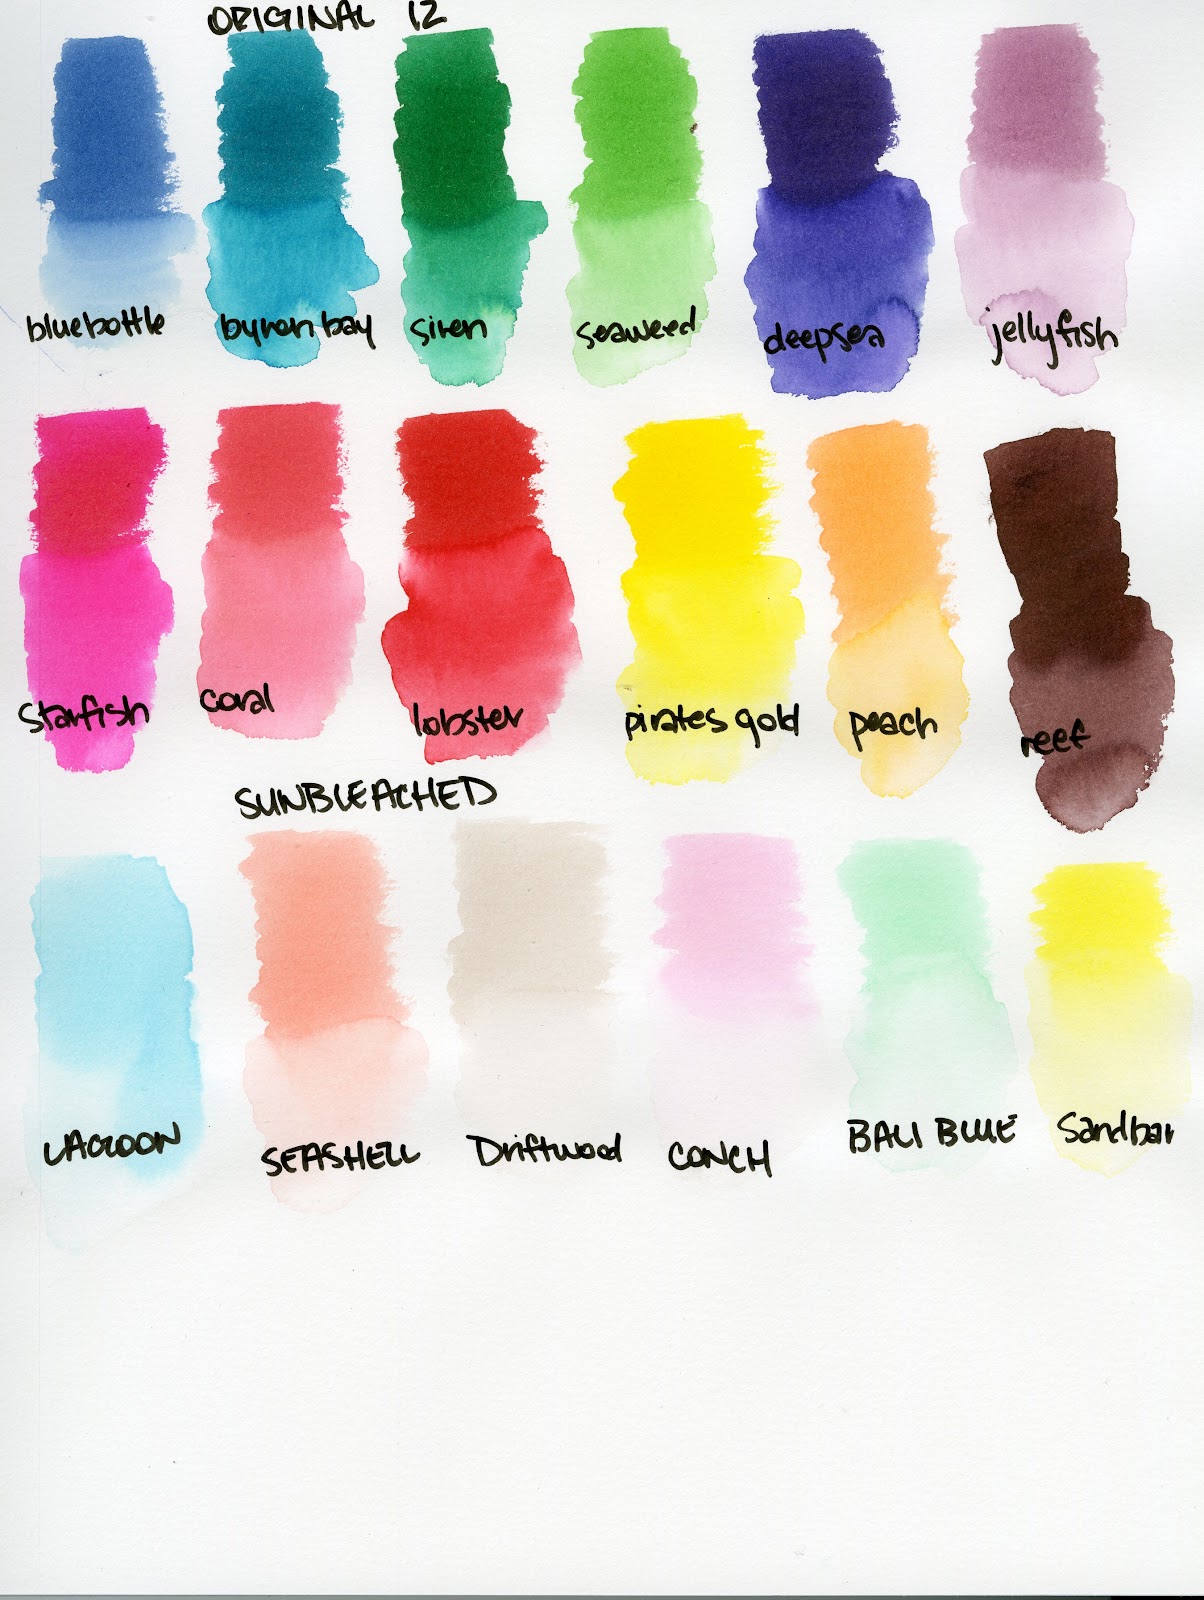 ORIGINAL 12
bluebottle byron bay siren seaweed deepsea jellyfish
starfish coral lobster pirates gold peach reef
SUNBLEACHED
LAGOON SEASHELL Driftwood CONCH BALI BLUE Sandbar